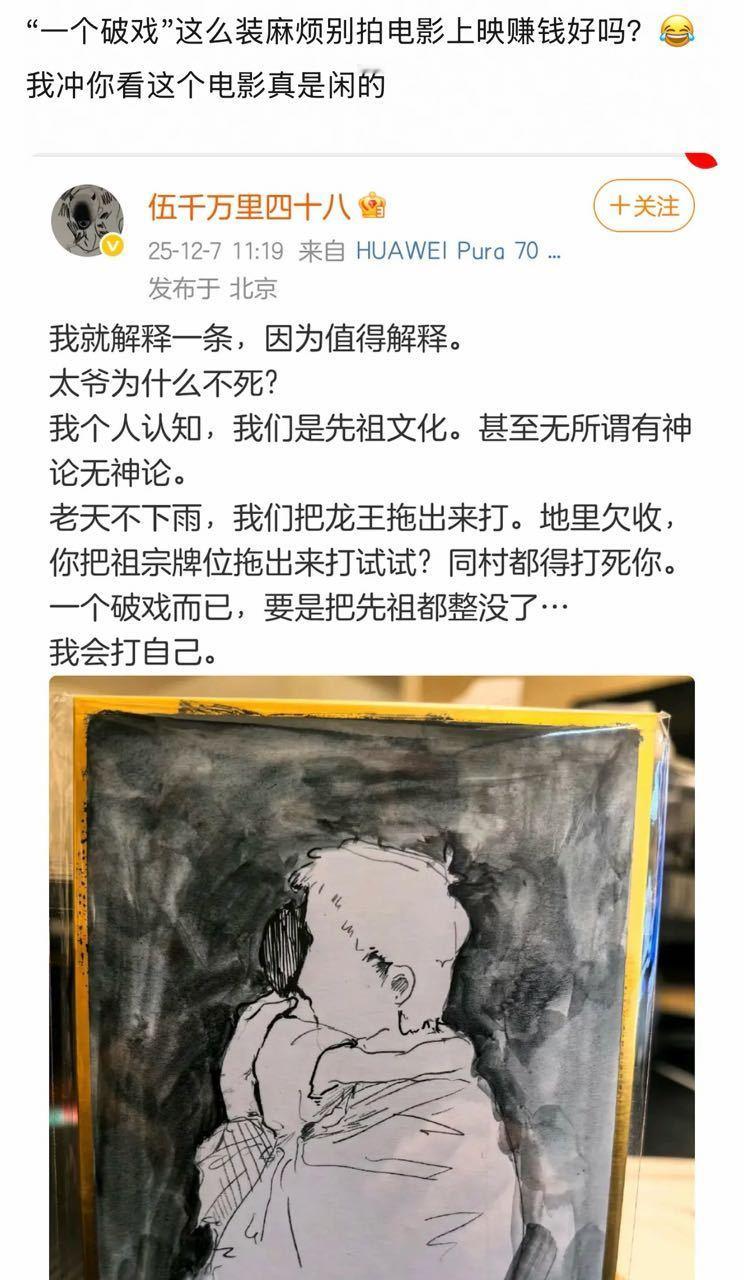 “一个破戏”这么装麻烦别拍电影上映赚钱好吗？😂
我冲你看这个电影真是闲的
伍千万里四十八
+关注
25-12-7 11:19 来自 HUAWEI Pura 70 ...
发布于 北京
我就解释一条，因为值得解释。
太爷为什么不死？
我个人认知，我们是先祖文化。甚至无所谓有神
论无神论。
老天不下雨，我们把龙王拖出来打。地里欠收，
你把祖宗牌位拖出来打试试？同村都得打死你。
一个破戏而已，要是把先祖都整没了…
我会打自己。